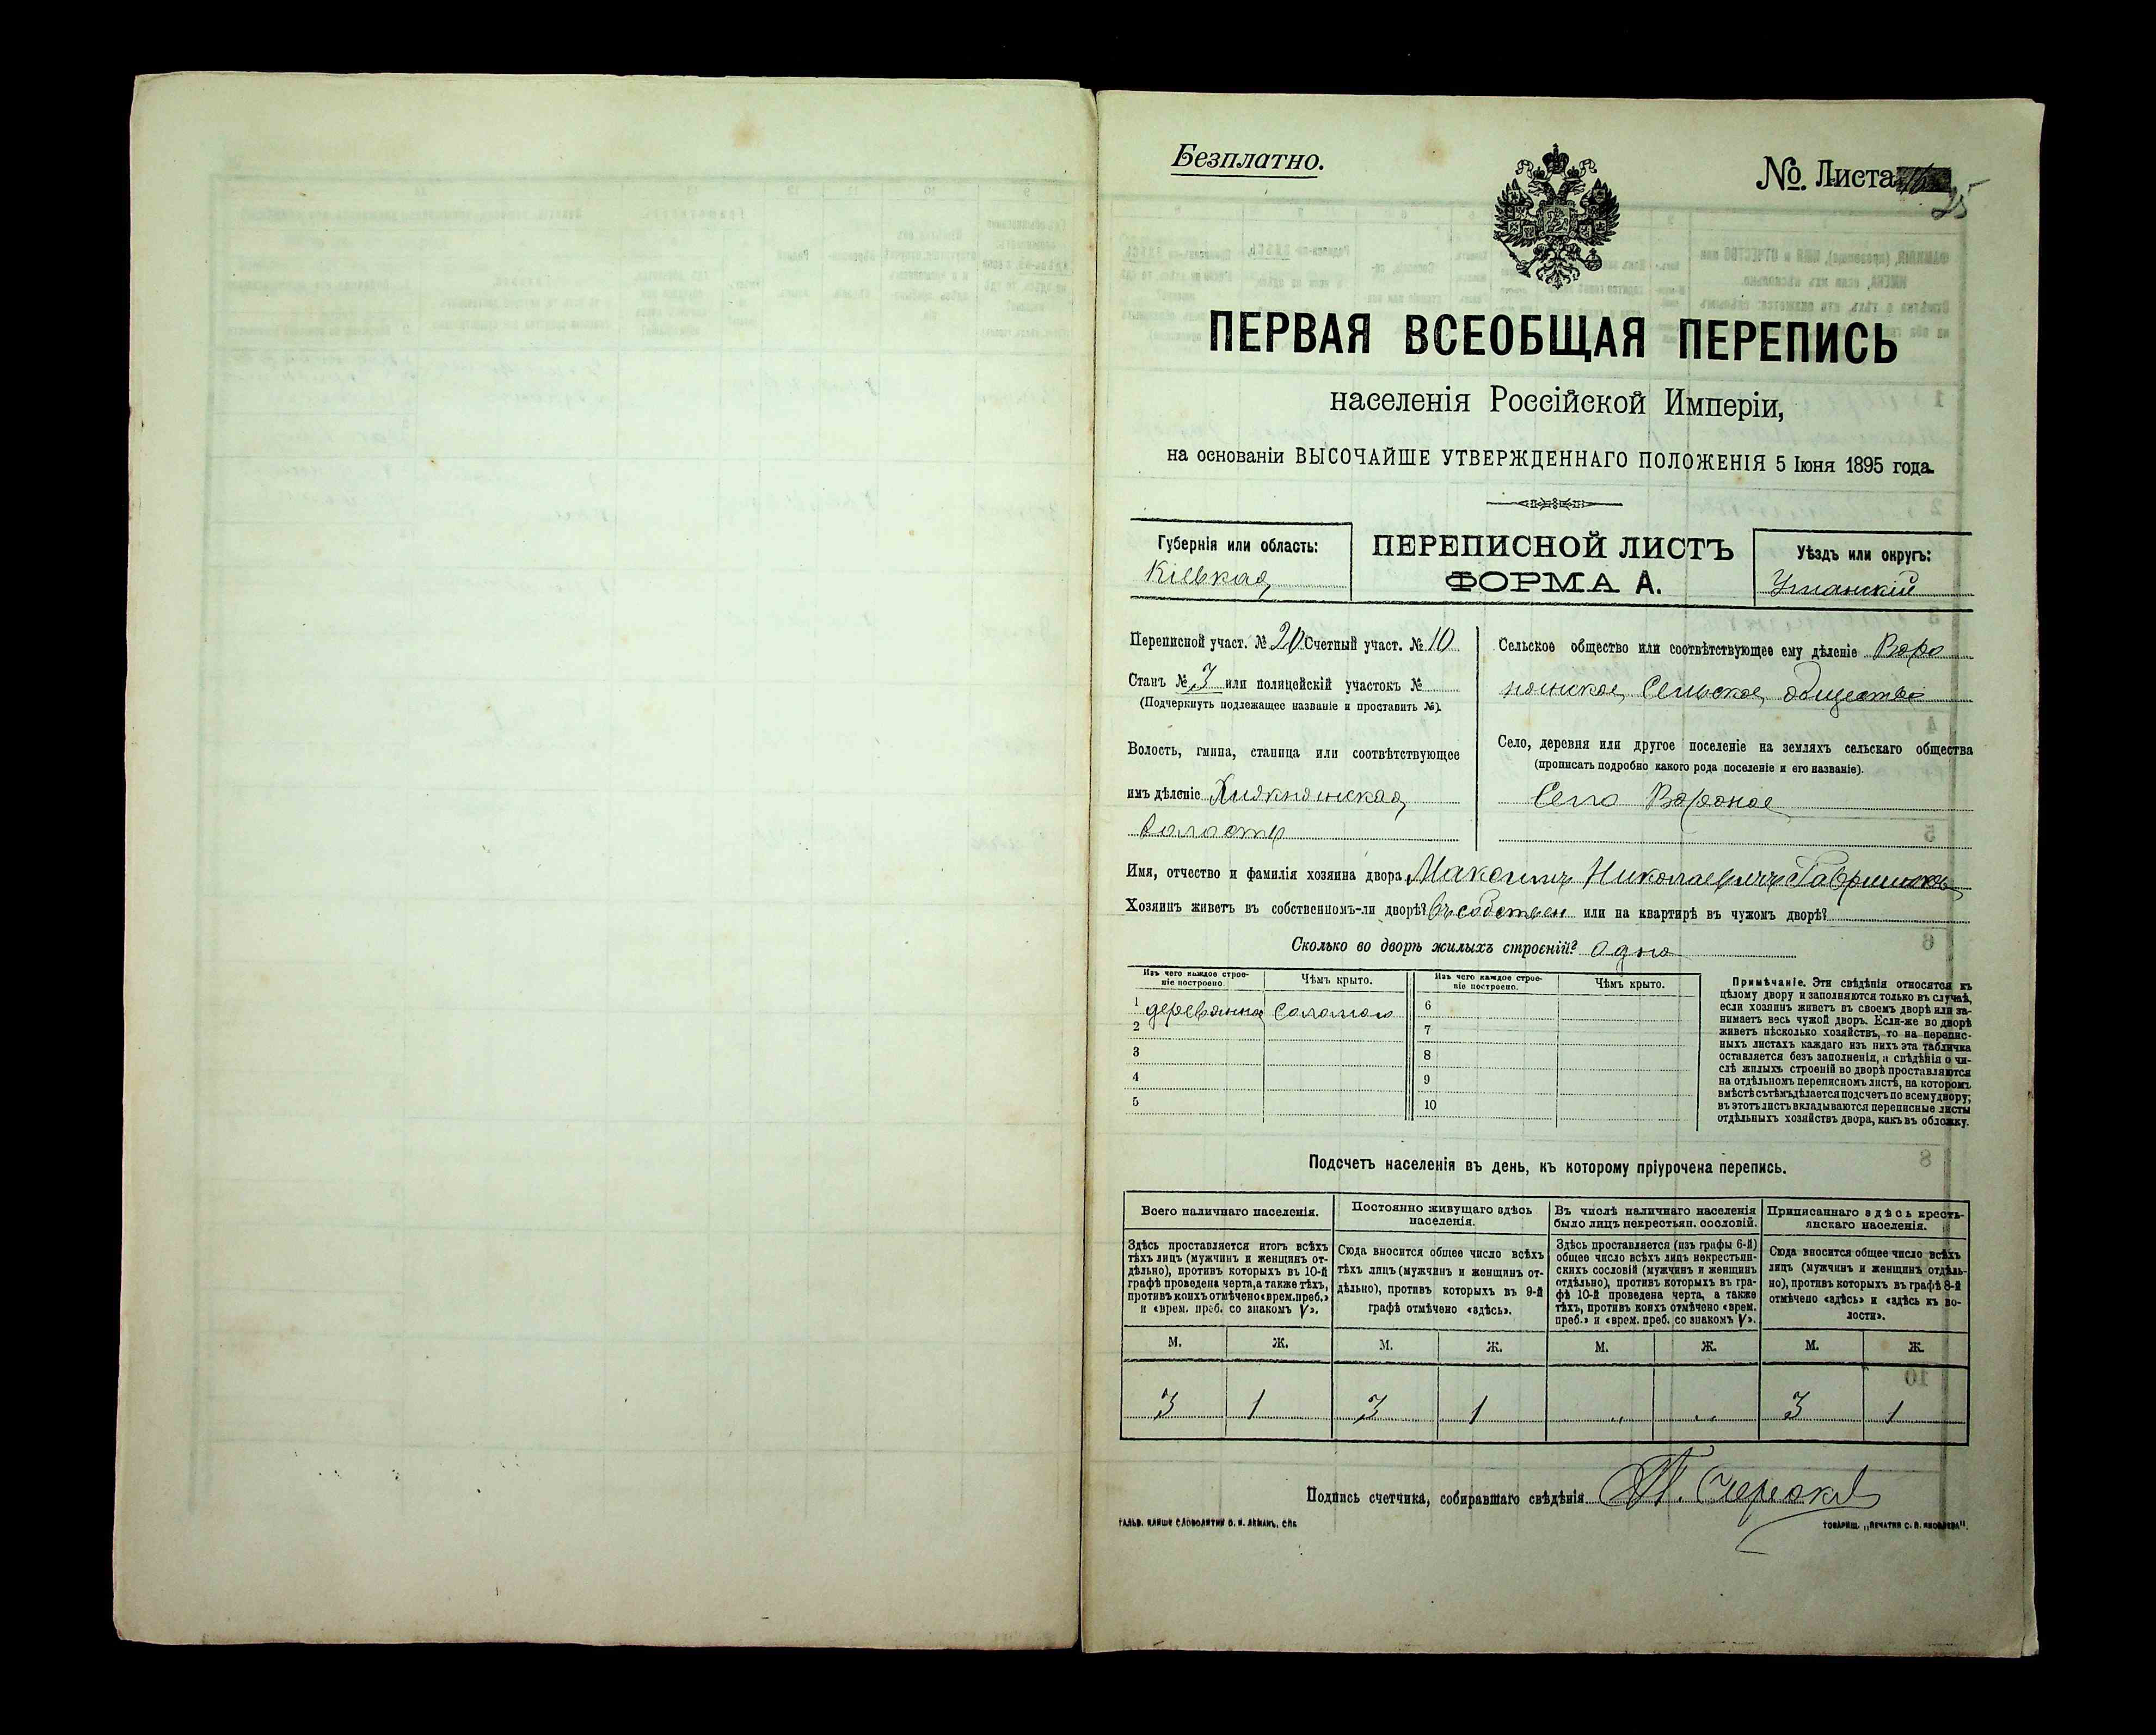 Безплатно.
№. Листа 25
ПЕРВАЯ ВСЕОБЩАЯ ПЕРЕПИСЬ
населенія Россійской Имперіи,
на основаніи ВЫСОЧАЙШЕ УТВЕРЖДЕННАГО ПОЛОЖЕНІЯ 5 Іюня 1895 года.
Губернія или область:
Кіевкая
ПЕРЕПИСНОЙ ЛИСТЪ
ФОРМА А.
Уѣздъ или округъ:
Уманскій
Переписной участ. № 20 Счетный участ. № 10
Станъ № 3 или полицейскій участокъ №
(Подчеркнуть подлежащее названіе и проставить №).
Волость, гмина, станица или соотвѣтствующее
имъ дѣленіе
волость
Сельское общество или соотвѣтствующее ему дѣленіе Воро
нянское Сельское общество
Село, деревня или другое поселеніе на земляхъ сельскаго общества
(прописать подробно какого рода поселеніе и его названіе).
Село Вороное
Имя, отчество и фамилія хозяина двора Максимъ Николаевичъ Гавришюкъ
Хозяинъ живетъ въ собственномъ-ли дворѣ? Въ собствен или на квартирѣ въ чужомъ дворѣ?
Сколько во дворѣ жилыхъ строеній? одно
Изъ чего каждое строе-
ніе построено.
Чѣмъ крыто.
Изъ чего каждое строе-
ніе построено.
Чѣмъ крыто.
1 деревянное соломою
2
3
4
5
6
7
8
9
10
Примѣчаніе. Эти свѣдѣнія относятся къ
цѣлому двору и заполняются только въ случаѣ,
если хозяинъ живетъ въ своемъ дворѣ или за-
нимаетъ весь чужой дворъ. Если-же во дворѣ
живетъ нѣсколько хозяйствъ, то на перепис-
ныхъ листахъ каждаго изъ нихъ эта табличка
оставляется безъ заполненія, а свѣдѣнія о чи-
слѣ жилыхъ строеній во дворѣ проставляются
на отдѣльномъ переписномъ листѣ, на которомъ
вмѣстѣ съ тѣмъ дѣлается подсчетъ по всему двору;
въ этотъ листъ вкладываются переписные листы
отдѣльныхъ хозяйствъ двора, какъ въ обложку.
Подсчетъ населенія въ день, къ которому пріурочена перепись.
Всего наличнаго населенія.
Постоянно живущаго здѣсь
населенія.
Въ числѣ наличнаго населенія
было лицъ некрестьян. сословій.
Приписаннаго здѣсь кресть-
янскаго населенія.
Здѣсь проставляется итогъ всѣхъ
тѣхъ лицъ (мужчинъ и женщинъ от-
дѣльно), противъ которыхъ въ 10-й
графѣ проведена черта, а также тѣхъ,
противъ коихъ отмѣчено «врем. преб.»
и «врем. преб. со знакомъ V».
Сюда вносится общее число всѣхъ
тѣхъ лицъ (мужчинъ и женщинъ от-
дѣльно), противъ которыхъ въ 9-й
графѣ отмѣчено «здѣсь».
Здѣсь проставляется (изъ графы 6-й)
общее число всѣхъ лицъ некрестьян-
скихъ сословій (мужчинъ и женщинъ
отдѣльно), противъ которыхъ въ гра-
фѣ 10-й проведена черта, а также
тѣхъ, противъ коихъ отмѣчено «врем.
преб.» и «врем. преб. со знакомъ V».
Сюда вносится общее число всѣхъ
лицъ (мужчинъ и женщинъ отдѣль-
но), противъ которыхъ въ графѣ 8-й
отмѣчено «здѣсь» и «здѣсь къ во-
лости».
М. Ж. М. Ж. М. Ж. М. Ж.
3 1 3 1 „ „ 3 1
Подпись счетчика, собиравшаго свѣдѣнія
ГАЛЬВ. КЛИШЕ СЛОВОЛИТНИ О. И. ЛЕМАНЪ, СПБ.
ТОВАРИЩ. „ПЕЧАТНЯ С. П. ЯКОВЛЕВА".